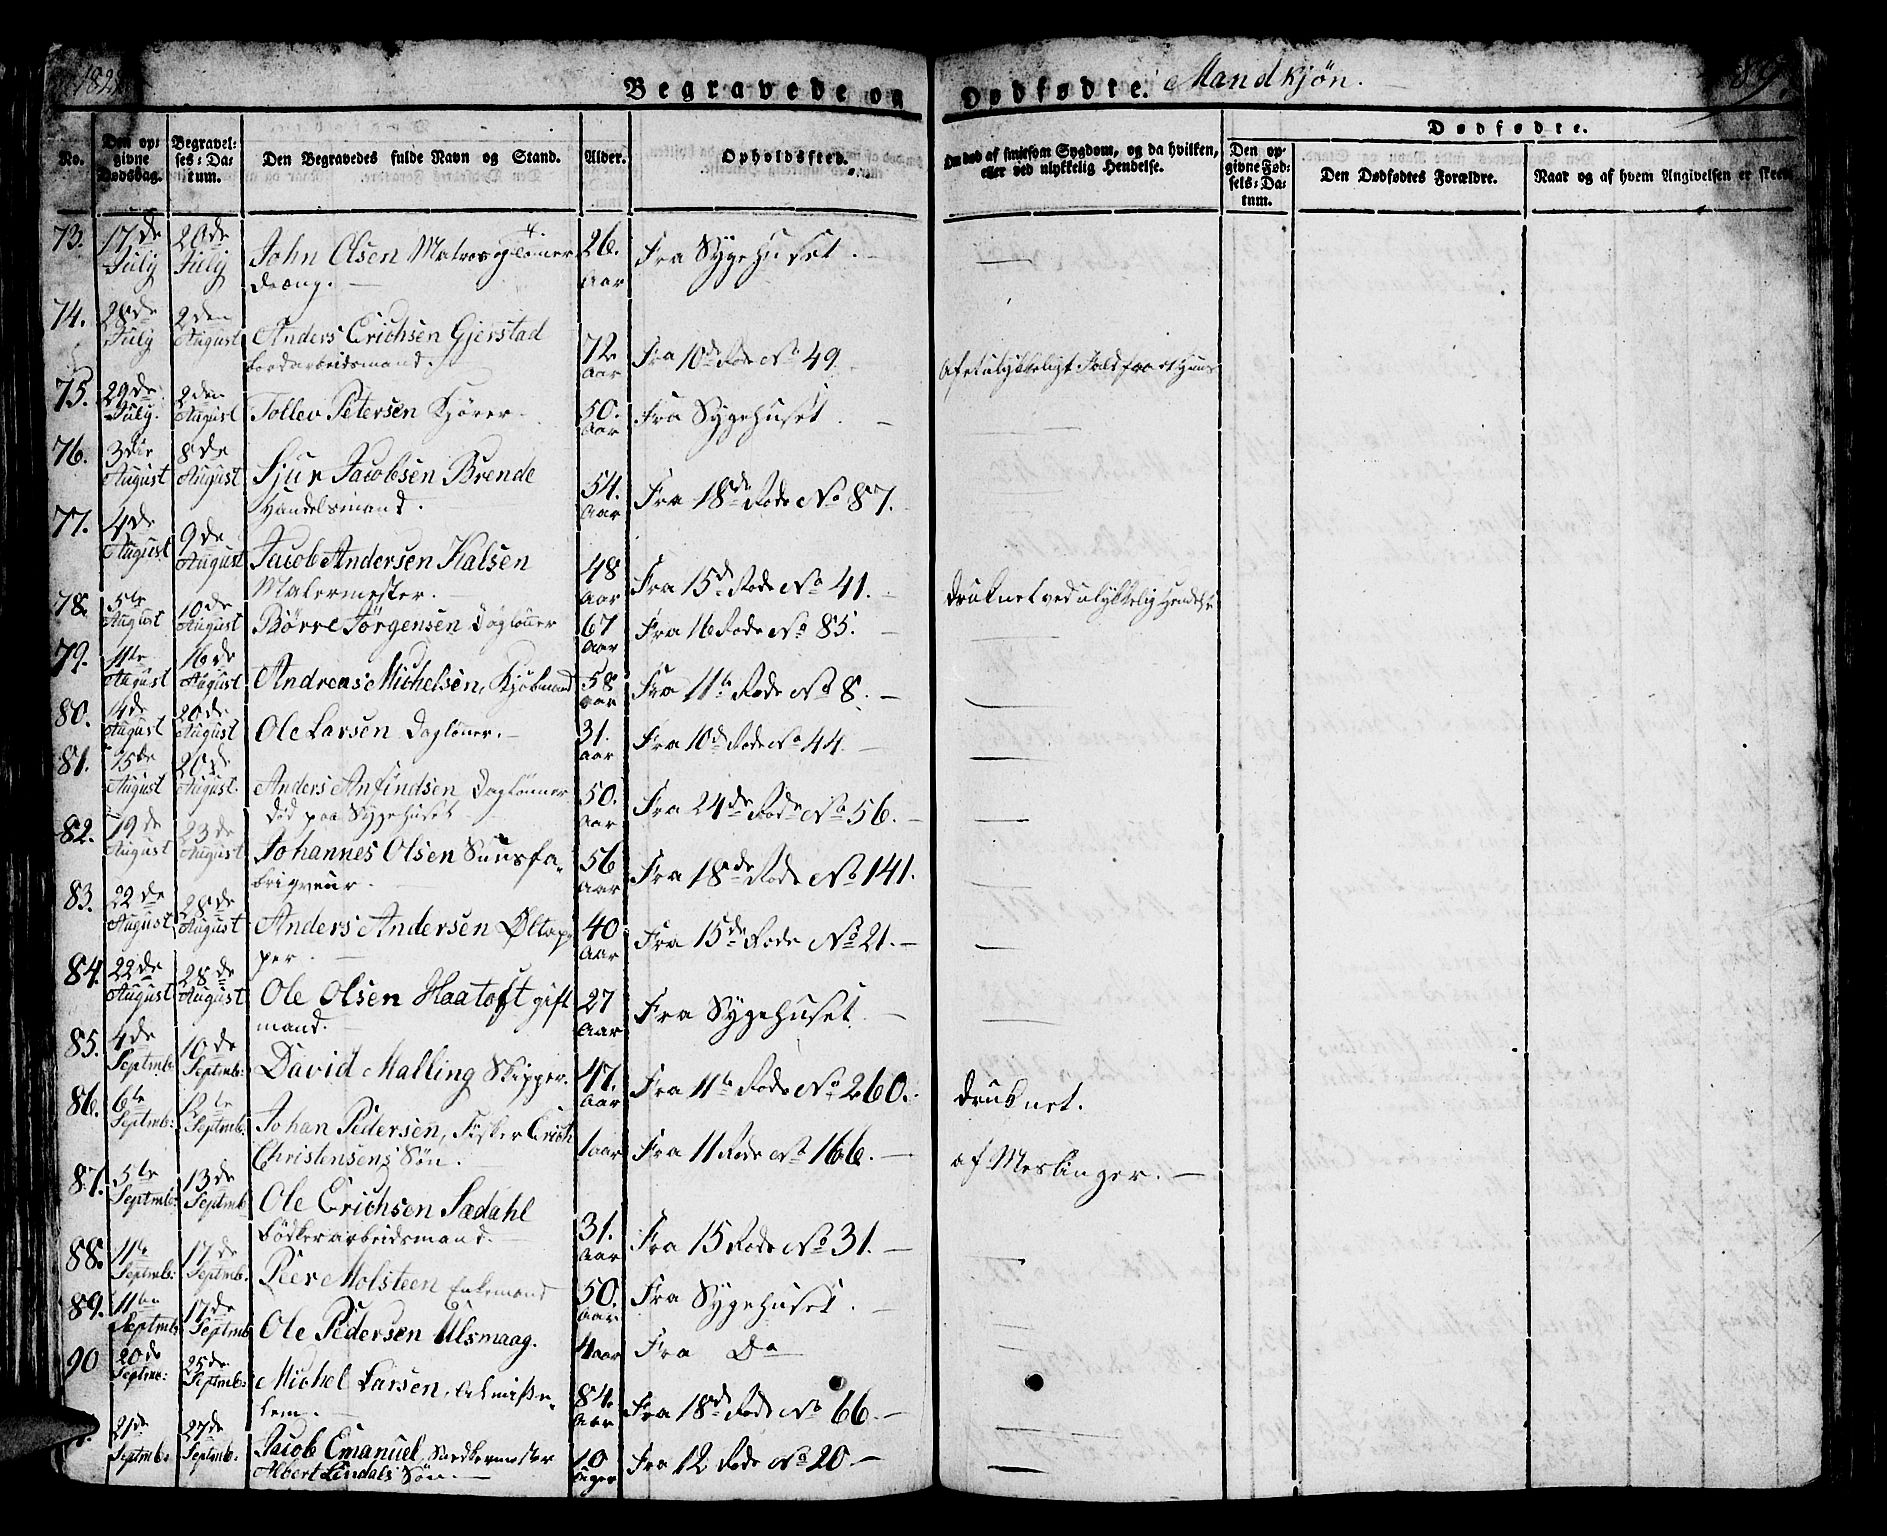 182
Begravede og Dødfødte. Mandkjøn.
89.
No.
Den opgivne Dødsdag.
Begravelses-Datum.
Den Begravedes fulde Navn og Stand.
Alder.
Opholdssted.
Om død af smitsom Sygdom, og da hvilken, eller ved ulykkelig Hendelse.
Dødfødte.
Den opgivne Fødsels-Datum.
Den Dødfødtes Forældre.
Naar og af hvem Angivelsen er skeet
73. 17de July 20de July John Olsen Matros og
dræng. 26. Aar Fra Sygehuset. —
74. 28de July 2den August Anders Erichsen Gjerstad
arbeidsmand. 72 Aar Fra 10de Rode No 49. Af et ulykkeligt Fald fra et Huus
75. 29de July. 2den August Tollev Petersen Kjører. 50. Aar Fra Sygehuset. —
76. 3die August 8de August Sjur Jacobsen Brende
Handelsmand. 54. Aar Fra 18de Rode No 87.
77. 4de August 9de August Jacob Andersen Kalsen
Malermester. 48 Aar Fra 15de Rode No 41. — Druknet ved ulykkelig Hendelse
78. 5te August 10de August Børre Jørgensen Dagløner 67 Aar Fra 16 Rode No 85. —
79. 11te August 16de August Andreas Michelsen, Kjøbmand 58 Aar Fra 11te Rode No 8. —
80. 14de August 20de August Ole Larsen Dagløner. — 31. Aar Fra 10de Rode No 44. —
81. 15de August 20de August. Anders Anfindsen Dagløner
død paa Sygehuset 50. Aar Fra 24de Rode No 56. —
82. 19de August 23de August Johannes Olsen Suusfa-
briqveur. 56 Aar Fra 18de Rode No 141.
83. 22de August 28de August Anders Andersen Øltap-
per. — 40 Aar Fra 15de Rode No 21. —
84. 22de August 28de August Ole Olsen Haatoft gift
mand. 27 Aar Fra Sygehuset. —
85. 4de Septmb: 10de Septmb: David Malling Skipper. 47. Aar Fra 11te Rode No 260. Druknet.
86. 6te Septmb: Septmb. Johan Pedersen, Fisker Erich
Christensens Søn. 1 aar Fra 11 Rode No 166. — af Meslinger. —
87. 5te Septmb: 13de Septmb. Ole Erichsen Sædahl
Bødkerarbeidsmand. 31. Aar Fra 15 Rode No 31. —
88. 11te Septmb: 17de Septmb. Peer Molsteen Enkemand 50. Aar Fra Sygehuset. —
89. 11te Septmb: 17de Septmb Ole Pedersen Ulsmaag. 4 aar Fra Do
90 20de Septmb: 25de Septmb: Michel Larsen, Almisse-
lem. 84. Aar Fra 18de Rode No 66. —
21de Septmb: 27de Septmb: Jacob Emanuel,
Albert Lindals Søn. — 10 Uger Fra 12 Rode No 20. —